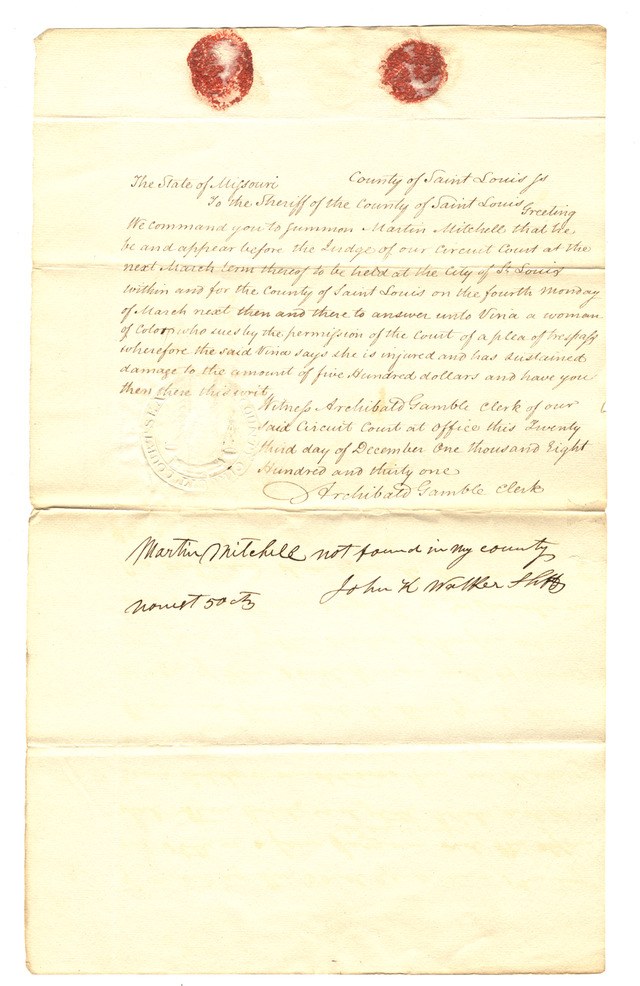 The State of Missouri County of Saint Louis Js
To the Sheriff of the County of Saint Louis Greeting
We command you to summon Martin Mitchell that he
be and appear before the Judge of our Circuit Court at the
next March term thereof to be held at the City of St Louis
within and for the County of Saint Louis on the fourth Monday
of March next then and there to answer unto Vina a woman
of Color who sues by the permission of the Court of a plea of trespass
wherefore the said Vina says she is injured and has sustained
damage to the amount of five Hundred dollars and have you
then there this writ
Witness Archibald Gamble Clerk of our
said Circuit Court at Office this Twenty
third day of December One thousand Eight
Hundred and thirty one
Archibald Gamble Clerk
Martin Mitchell not found in my county
John K Walker Shff
nonest 50 cts